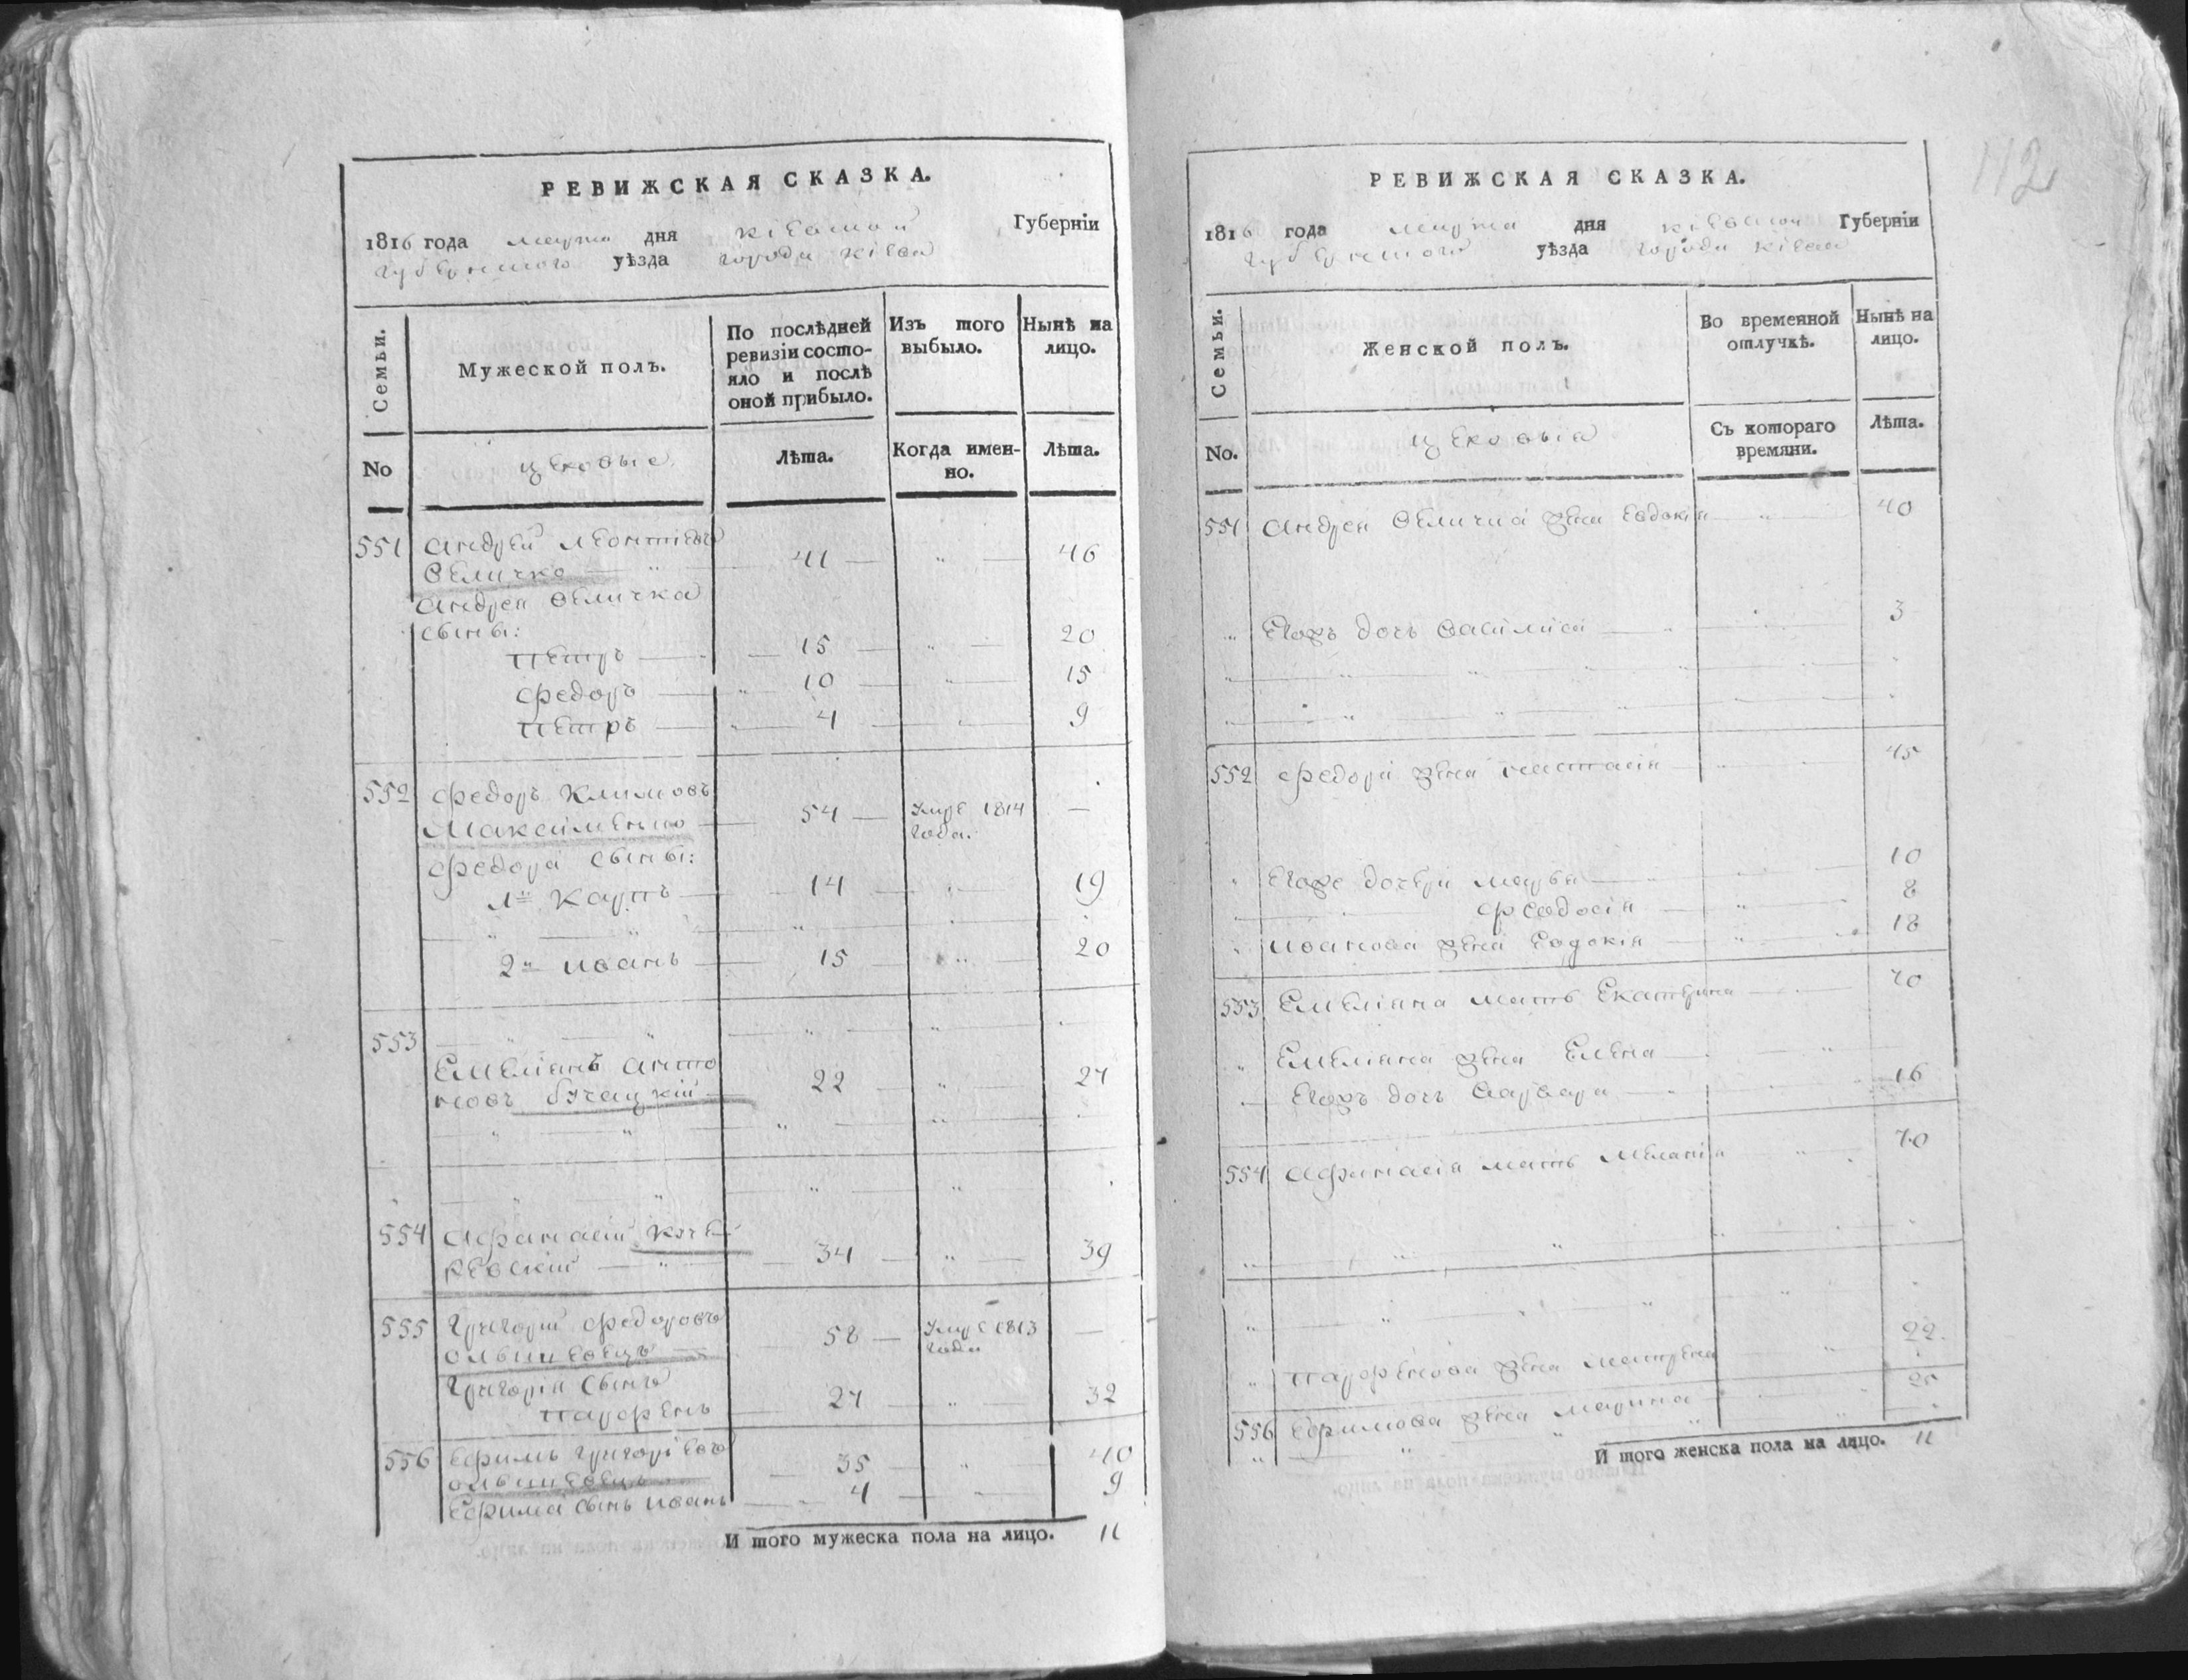 РЕВИЖСКАЯ СКАЗКА.
1816 года марта дня Кіевской Губерніи
Губернского уѣзда города Кіева
Семьи.
Мужеской полъ.
По послѣдней ревизіи состояло и послѣ оной прибыло.
Изъ того выбыло.
Нынѣ на лицо.
No
цеховые
Лѣта.
Когда именно.
Лѣта.
551 Андрей Леонтіевъ
Величко 41 46
Андрея Величка
сыны:
Петръ 15 20
Федоръ 10 15
Петръ 4 9
552 Федоръ Климовъ
Максименко 54 Умре 1814 года. —
Федора сыны:
1й Карпъ 14 19
2й Иванъ 15 20
553
Емеліянъ Анто
новъ Бучацкій 22 27
554 Афанасій
34 39
555 Григорій Федоровъ
Ольшевецъ 58 Умре 1813 года —
Григорія сынъ
Парфенъ 27 32
556 Ефимъ Григоріевъ
Ольшевецъ 35 40
Ефима сынъ Иванъ 4 9
И того мужеска пола на лицо. 11
112
РЕВИЖСКАЯ СКАЗКА.
1816 года марта дня Кіевской Губерніи
Губернского уѣзда города Кіева
Семьи.
Женской полъ.
Во временной отлучкѣ.
Нынѣ на лицо.
No.
цеховыя
Съ котораго времяни.
Лѣта.
551 Андрея Велична жена Евдокія 40
Егожъ дочь Василиса 3
552 Федора жена Настасія 45
Егоже дочери Марья 10
Феодосія 8
Иванова жена Евдокія 18
553 Емеліяна мать Екатерина 70
Емеліяна жена Елена
Егожъ дочь Варвара 16
554 Афанасія мать Меланія 70
Парфенова жена Матрена 22
556 Ефимова жена Марина
И того женска пола на лицо. 11